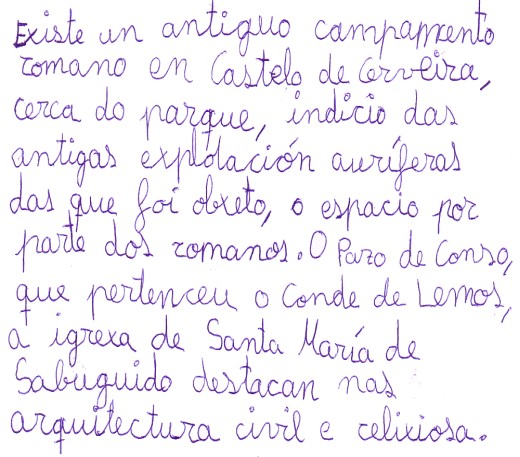 Existe un antiguo campamento
romano en Castelo de Cerveira,
cerca do parque, indicio das
antigas explotación auríferas
das que foi obxeto, o espacio por
parte dos romanos. O Pazo de Conso,
que pertenceu o Conde de Lemos,
a igrexa de Santa María de
Sabuguido destacan nas
arquitectura civil e relixiosa.